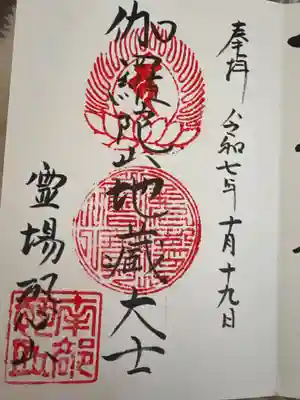 奉拝 令和七年十月十九日
伽羅陀山地蔵大士
霊場恐山
南部
恐山